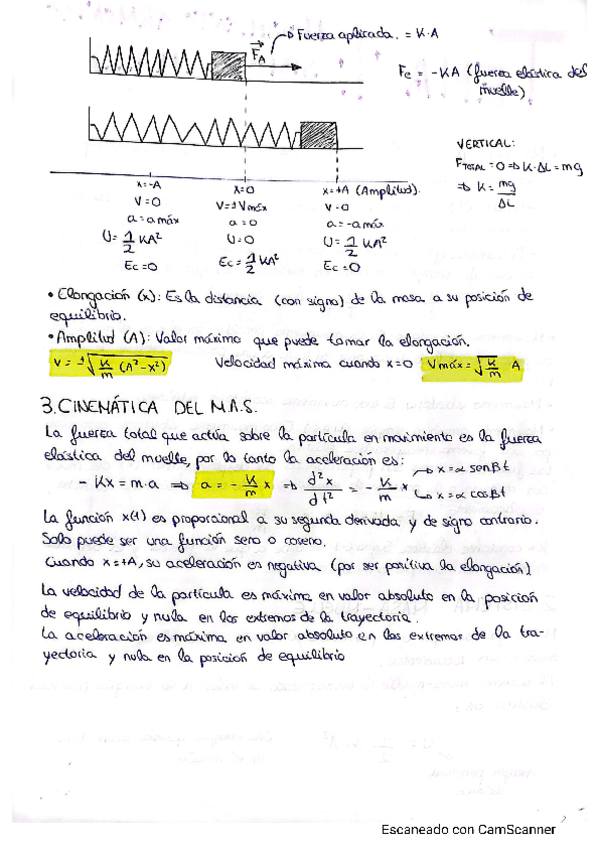 Fuerza aplicada. = K·A
F_A
Fe = -KA (fuerza elástica del
muelle)
VERTICAL:
F_TOTAL = 0 ⇒ K·ΔL = mg
⇒ K = mg/ΔL
x=-A
V=0
a=a máx
U= 1/2 KA²
Ec=0
x=0
V=±Vmáx
a=0
U=0
Ec= 1/2 KA²
x=+A (Amplitud).
V=0
a=-a máx
U= 1/2 KA²
Ec=0
• Elongación (x): Es la distancia (con signo) de la masa a su posición de
equilibrio.
• Amplitud (A): Valor máximo que puede tomar la elongación.
V = ±√(K/m (A²-x²)) Velocidad máxima cuando x=0 Vmáx = √(K/m) A
3. CINEMÁTICA DEL M.A.S.
La fuerza total que actúa sobre la partícula en movimiento es la fuerza
elástica del muelle, por lo tanto la aceleración es:
- Kx = m·a ⇒ a = - K/m x ⇒ d²x/dt² = - K/m x
→ x=α senβt
→ x=α cosβt
La función x(t) es proporcional a su segunda derivada y de signo contrario.
Solo puede ser una función seno o coseno.
Cuando x=+A, su aceleración es negativa (por ser positiva la elongación)
La velocidad de la partícula es máxima en valor absoluto en la posición
de equilibrio y nula en los extremos de la trayectoria.
La aceleración es máxima en valor absoluto en los extremos de la tra-
yectoria y nula en la posición de equilibrio
Escaneado con CamScanner